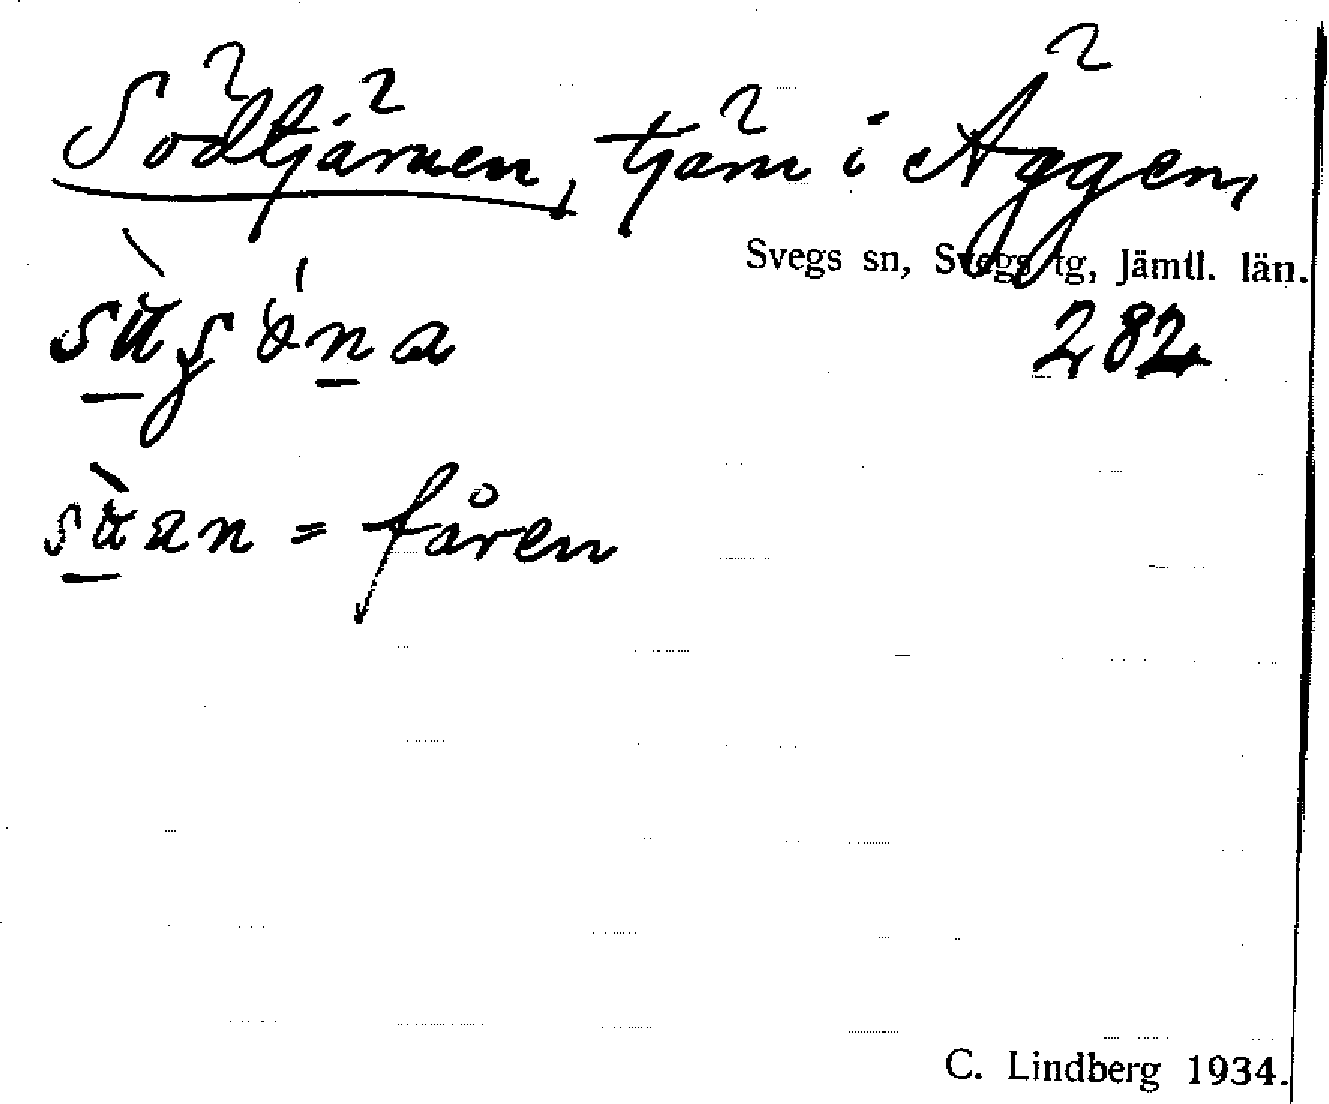 Södtjärnen, tjärn i Äggen,
Svegs sn, Svegs tg, Jämtl. län.
282
= fåren
C. Lindberg 1934.